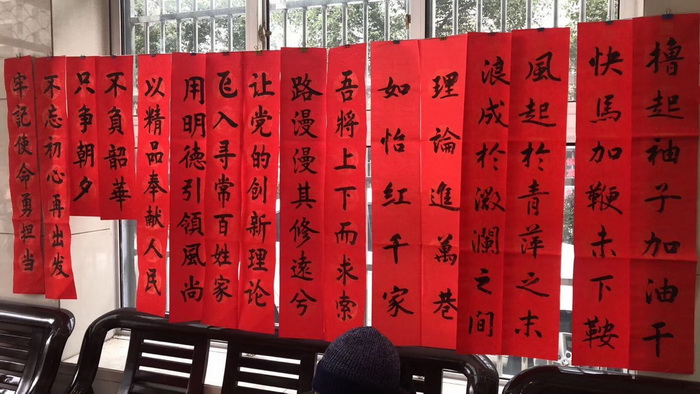 擼起袖子加油干
快馬加鞭未下鞍
風起於青萍之末
浪成於微瀾之间
理論進萬巷
如怡紅千家
吾將上下而求索
路漫漫其修遠兮
让党的创新理论
飞入寻常百姓家
用明德引領風尚
以精品奉献人民
不負韶華
只争朝夕
不忘初心再出发
牢記使命勇担当